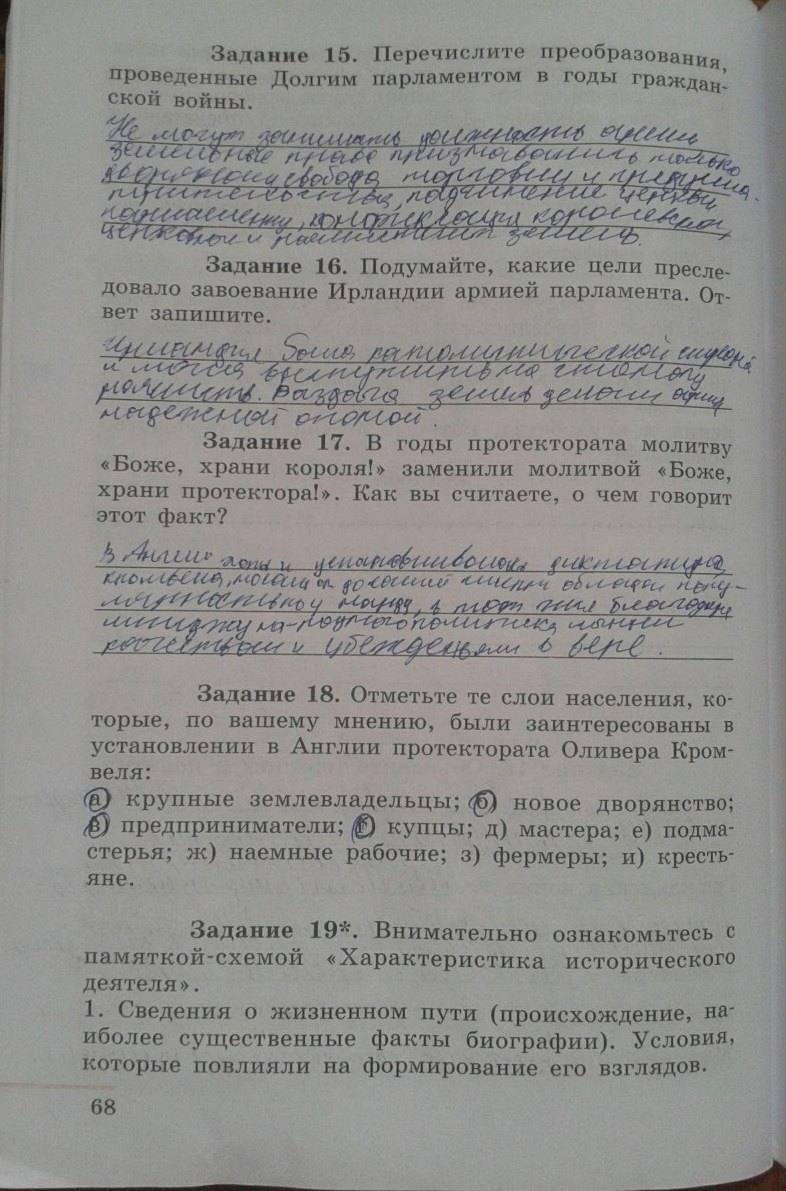 Задание 15. Перечислите преобразования,
проведенные Долгим парламентом в годы граждан-
ской войны.
Не могут занимать должность
земельные право только
дворянский свобода торговли и предприни-
подчинение церкви
парламенту, конфискация королевских,
церковных и земель.
Задание 16. Подумайте, какие цели пресле-
довало завоевание Ирландии армией парламента. От-
вет запишите.
Ирландия была католической страной
и могла выступить на сторону
роялистов. Раздача земель делали
надежной опорой.
Задание 17. В годы протектората молитву
«Боже, храни короля!» заменили молитвой «Боже,
храни протектора!». Как вы считаете, о чем говорит
этот факт?
В Англии хоть и устанавливалась диктатура
Кромвеля,
в тот же
качествам и убеждениям в вере.
Задание 18. Отметьте те слои населения, ко-
торые, по вашему мнению, были заинтересованы в
установлении в Англии протектората Оливера Кром-
веля:
а) крупные землевладельцы; б) новое дворянство;
в) предприниматели; г) купцы; д) мастера; е) подма-
стерья; ж) наемные рабочие; з) фермеры; и) кресть-
яне.
Задание 19*. Внимательно ознакомьтесь с
памяткой-схемой «Характеристика исторического
деятеля».
1. Сведения о жизненном пути (происхождение, на-
иболее существенные факты биографии). Условия,
которые повлияли на формирование его взглядов.
68